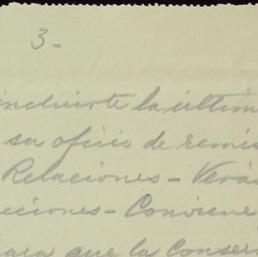 3-
incluirte la últim
su oficio de remis
Relaciones - Verá
cciones - Conviene
para que la Conser